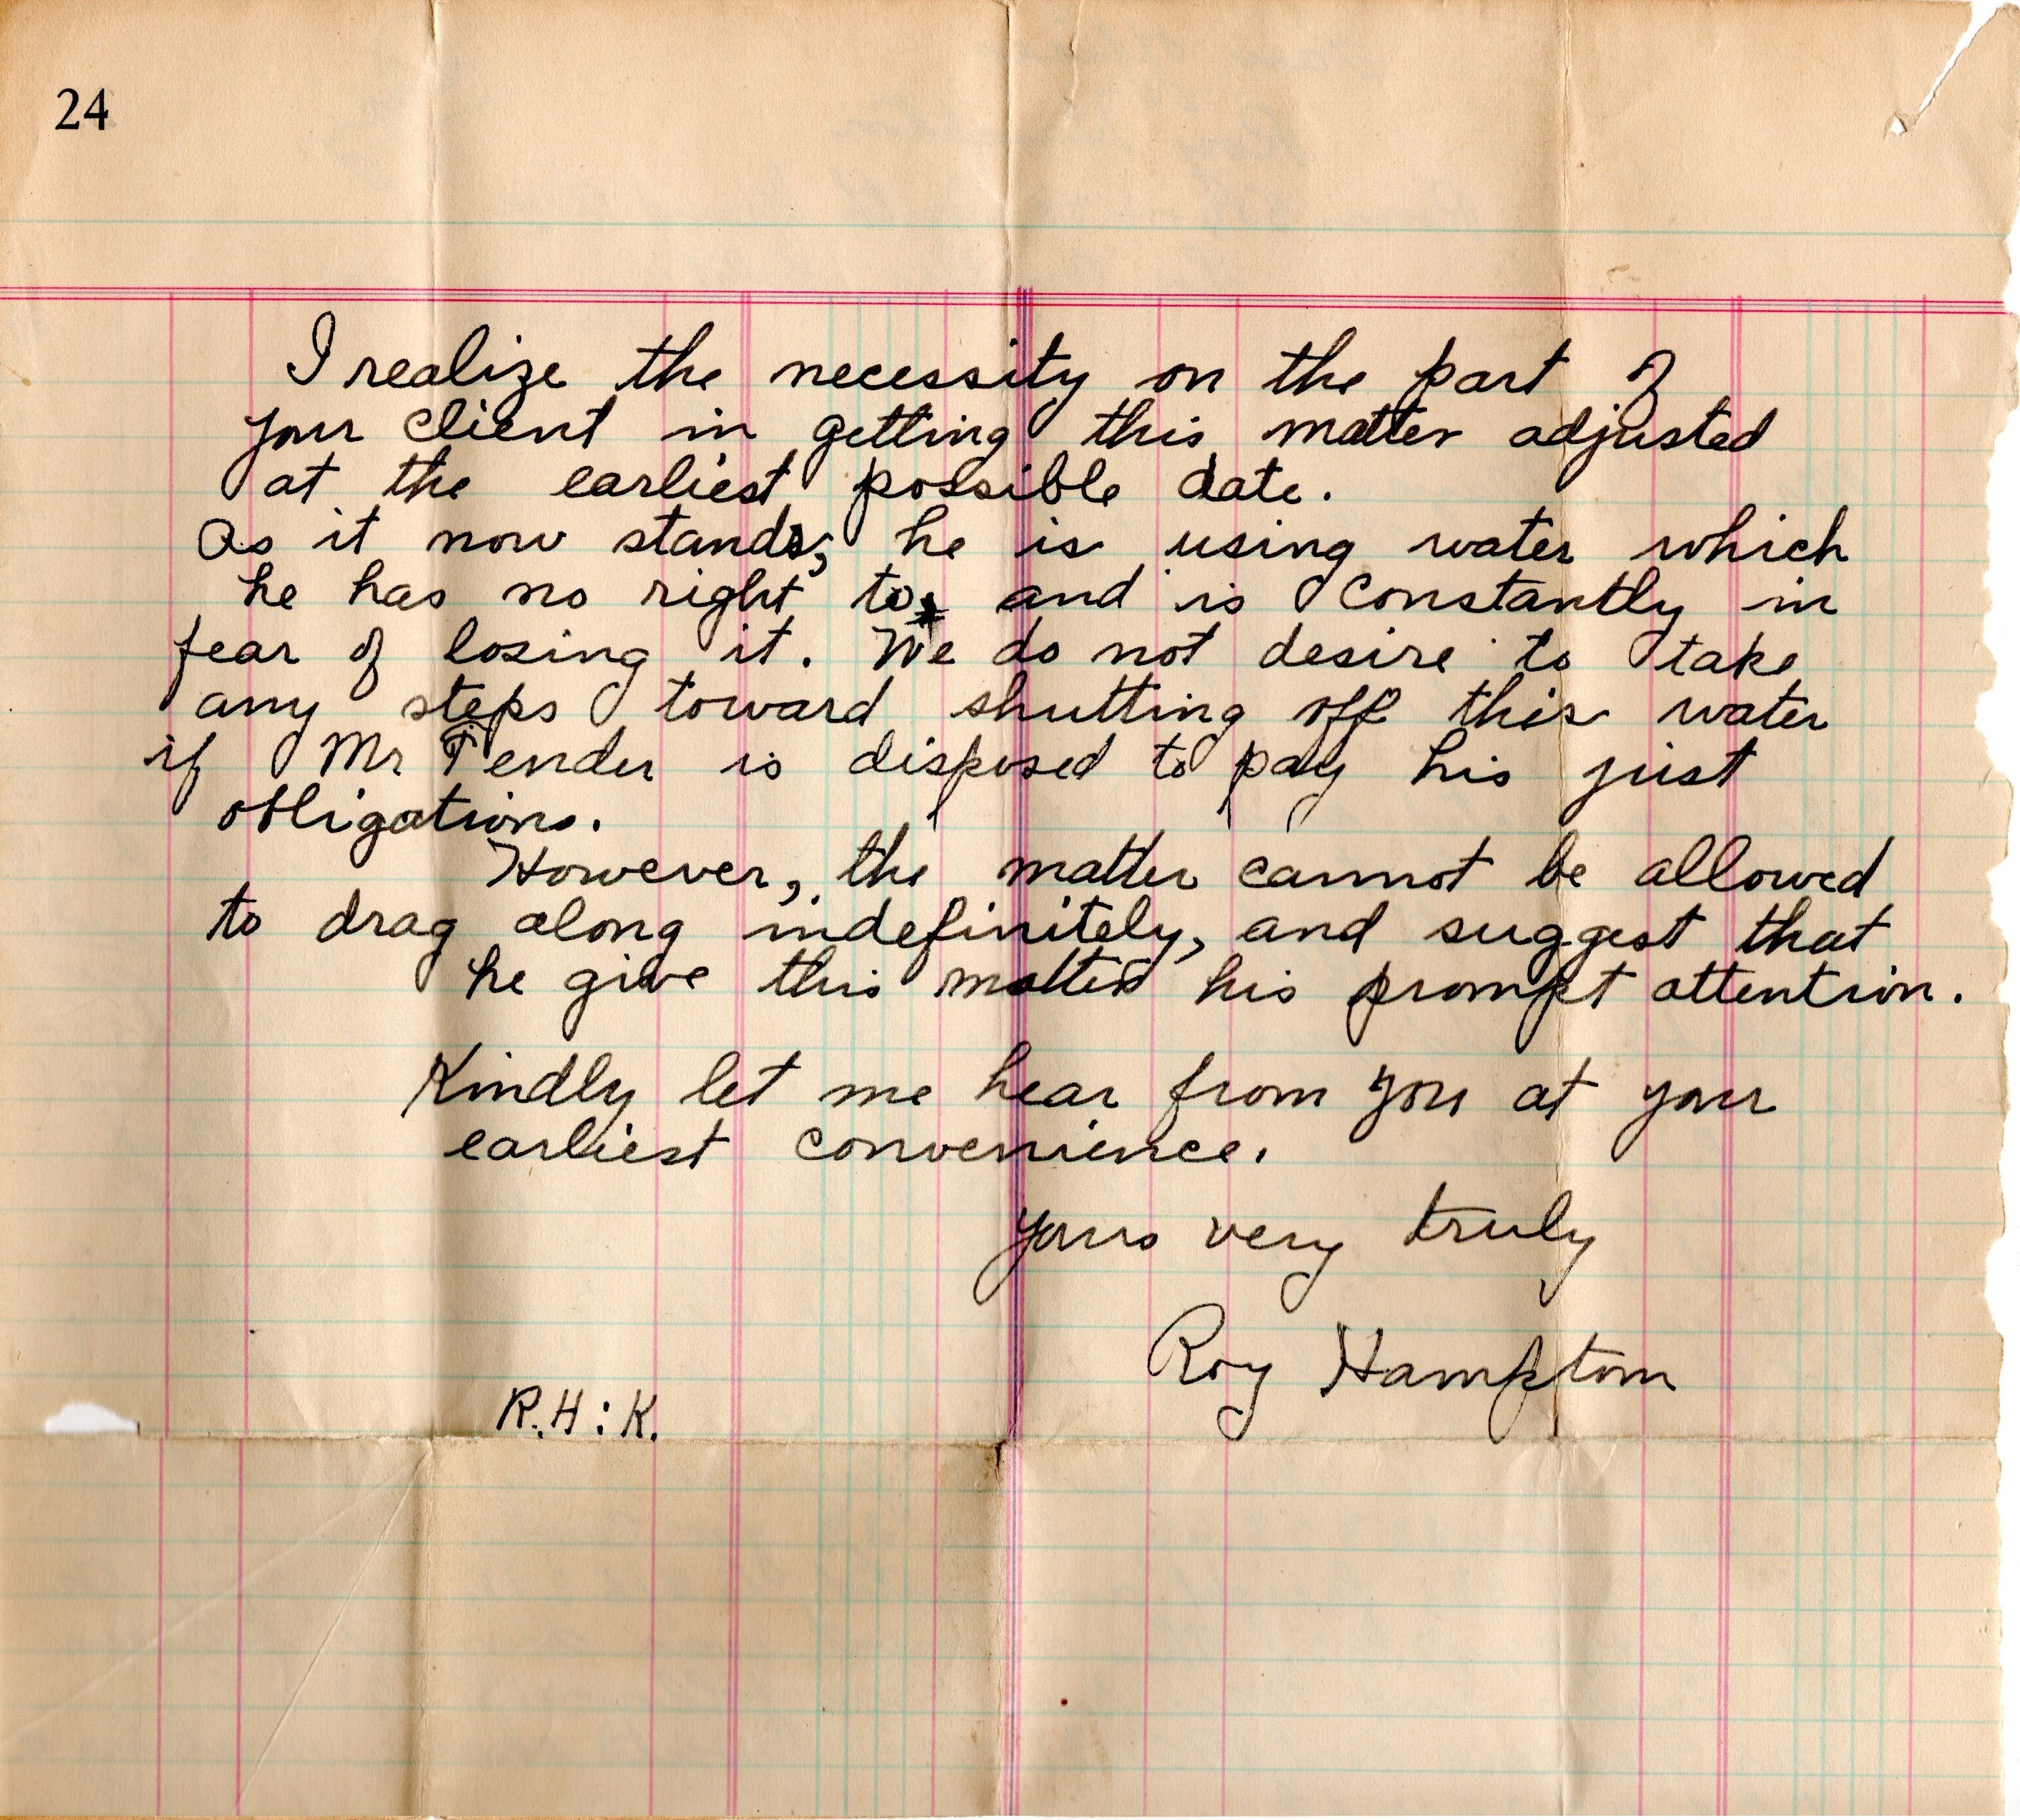 24
I realize the necessity on the part of
your client in getting this matter adjusted
at the earliest possible date.
As it now stands, he is using water which
he has no right to, and is constantly in
fear of losing it. We do not desire to take
any steps toward shutting off this water
if Mr Fender is disposed to pay his just
obligations.
However, the matter cannot be allowed
to drag along indefinitely, and suggest that
he give this matter his prompt attention.
Kindly let me hear from you at your
earliest convenience.
Yours very truly
Roy Hampton
R.H:K.